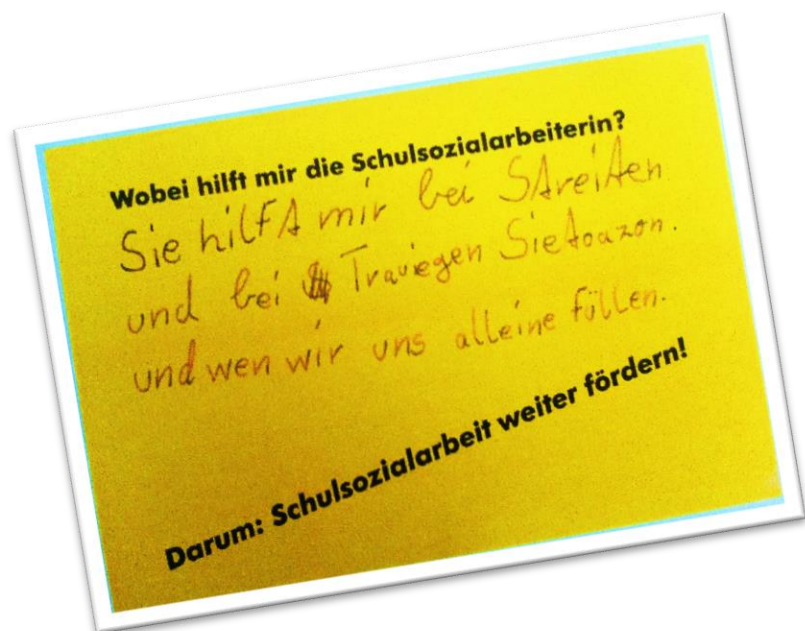 Wobei hilft mir die Schulsozialarbeiterin?
Sie hilFt mir bei Streiten
und bei Trauiegen Sietoazon.
und wen wir uns alleine füllen.
Darum: Schulsozialarbeit weiter fördern!